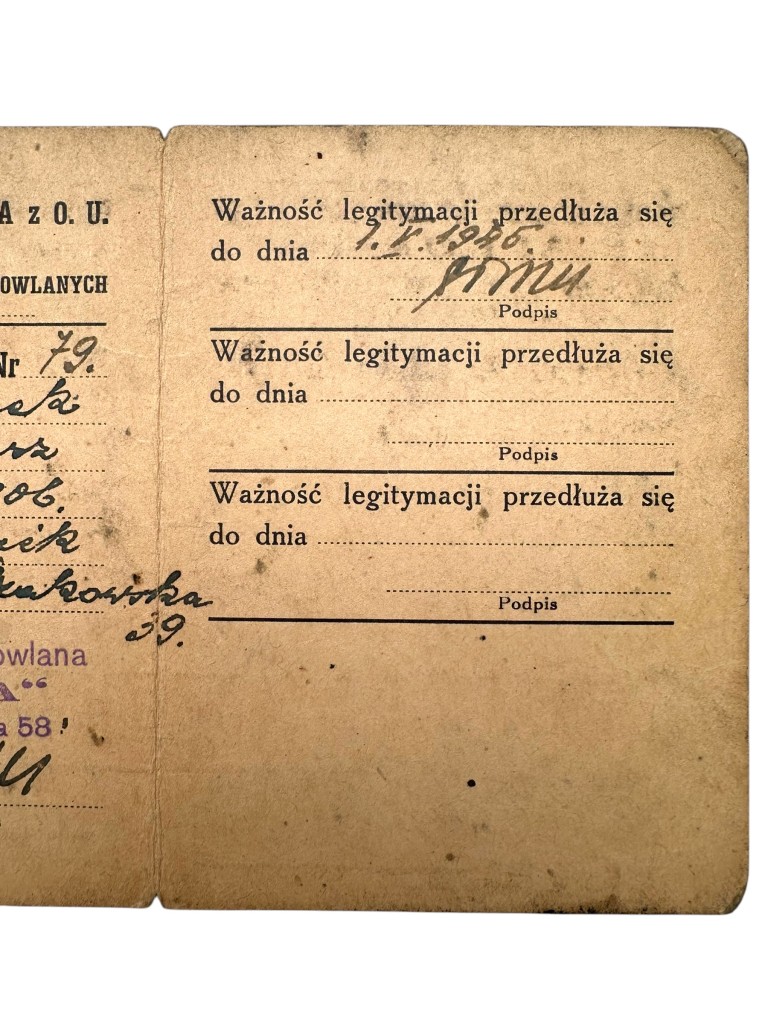 A z O. U.
OWLANYCH
Nr 79.
ob.
Krakowska
39.
owlana
A“
a 58
Ważność legitymacji przedłuża się
do dnia 1. V. 1946.
Podpis
Ważność legitymacji przedłuża się
do dnia
Podpis
Ważność legitymacji przedłuża się
do dnia
Podpis